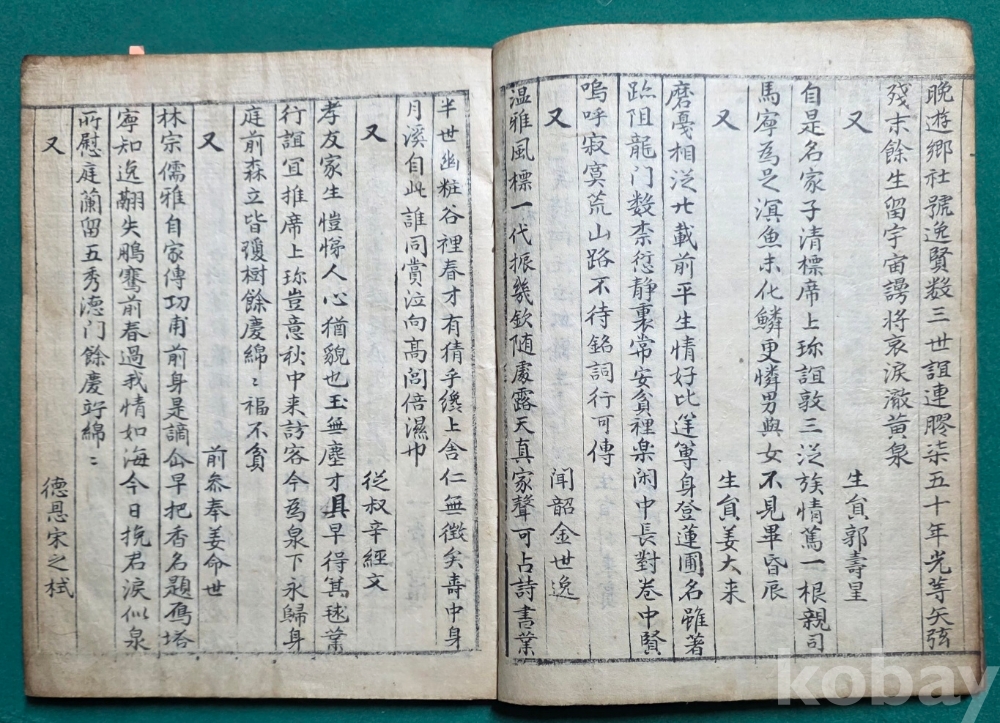 晩遊鄕社號逸賢数三世誼連膠柒五十年光等矢弦
殘末餘生留宇宙謗將哀淚澈黃泉
又 生貟郭壽星
自是名家子清標席上珎誼敦三泛族情篤一根親司
馬寧爲足溟魚未化鱗更憐男與女不見畢昏辰
又 生貟姜大来
磨憂相泛廿載前平生情好比莚篿身登蓮圃名雖著
跡阻龍门数柰愆静裏常安貧裡楽闲中長對卷中賢
嗚呼寂寞荒山路不待銘詞行可傳
又 闻韶金世逸
温雅風標一代振幾欽随處露天真家聲可占詩書業
半世幽粧谷裡春才有猜乎纔上舍仁無徵矣壽中身
月溪自此誰同賞泣向高閭倍濕巾
又 從叔辛經文
孝友家生愷悌人心猶貌也玉無塵才具早得箕毬業
行誼宜推席上珎豈意秋中来訪客今爲泉下永歸身
庭前森立皆瓊樹餘慶綿〻福不貧
又 前叅奉姜命世
林宗儒雅自家傳功甫前身是謫仚早把香名題鴈塔
寧知逸翮失鵬騫前春過我情如海今日挽君淚似泉
所慰庭蘭留五秀德门餘慶竚綿〻
又 德恩宋之栻
kobay